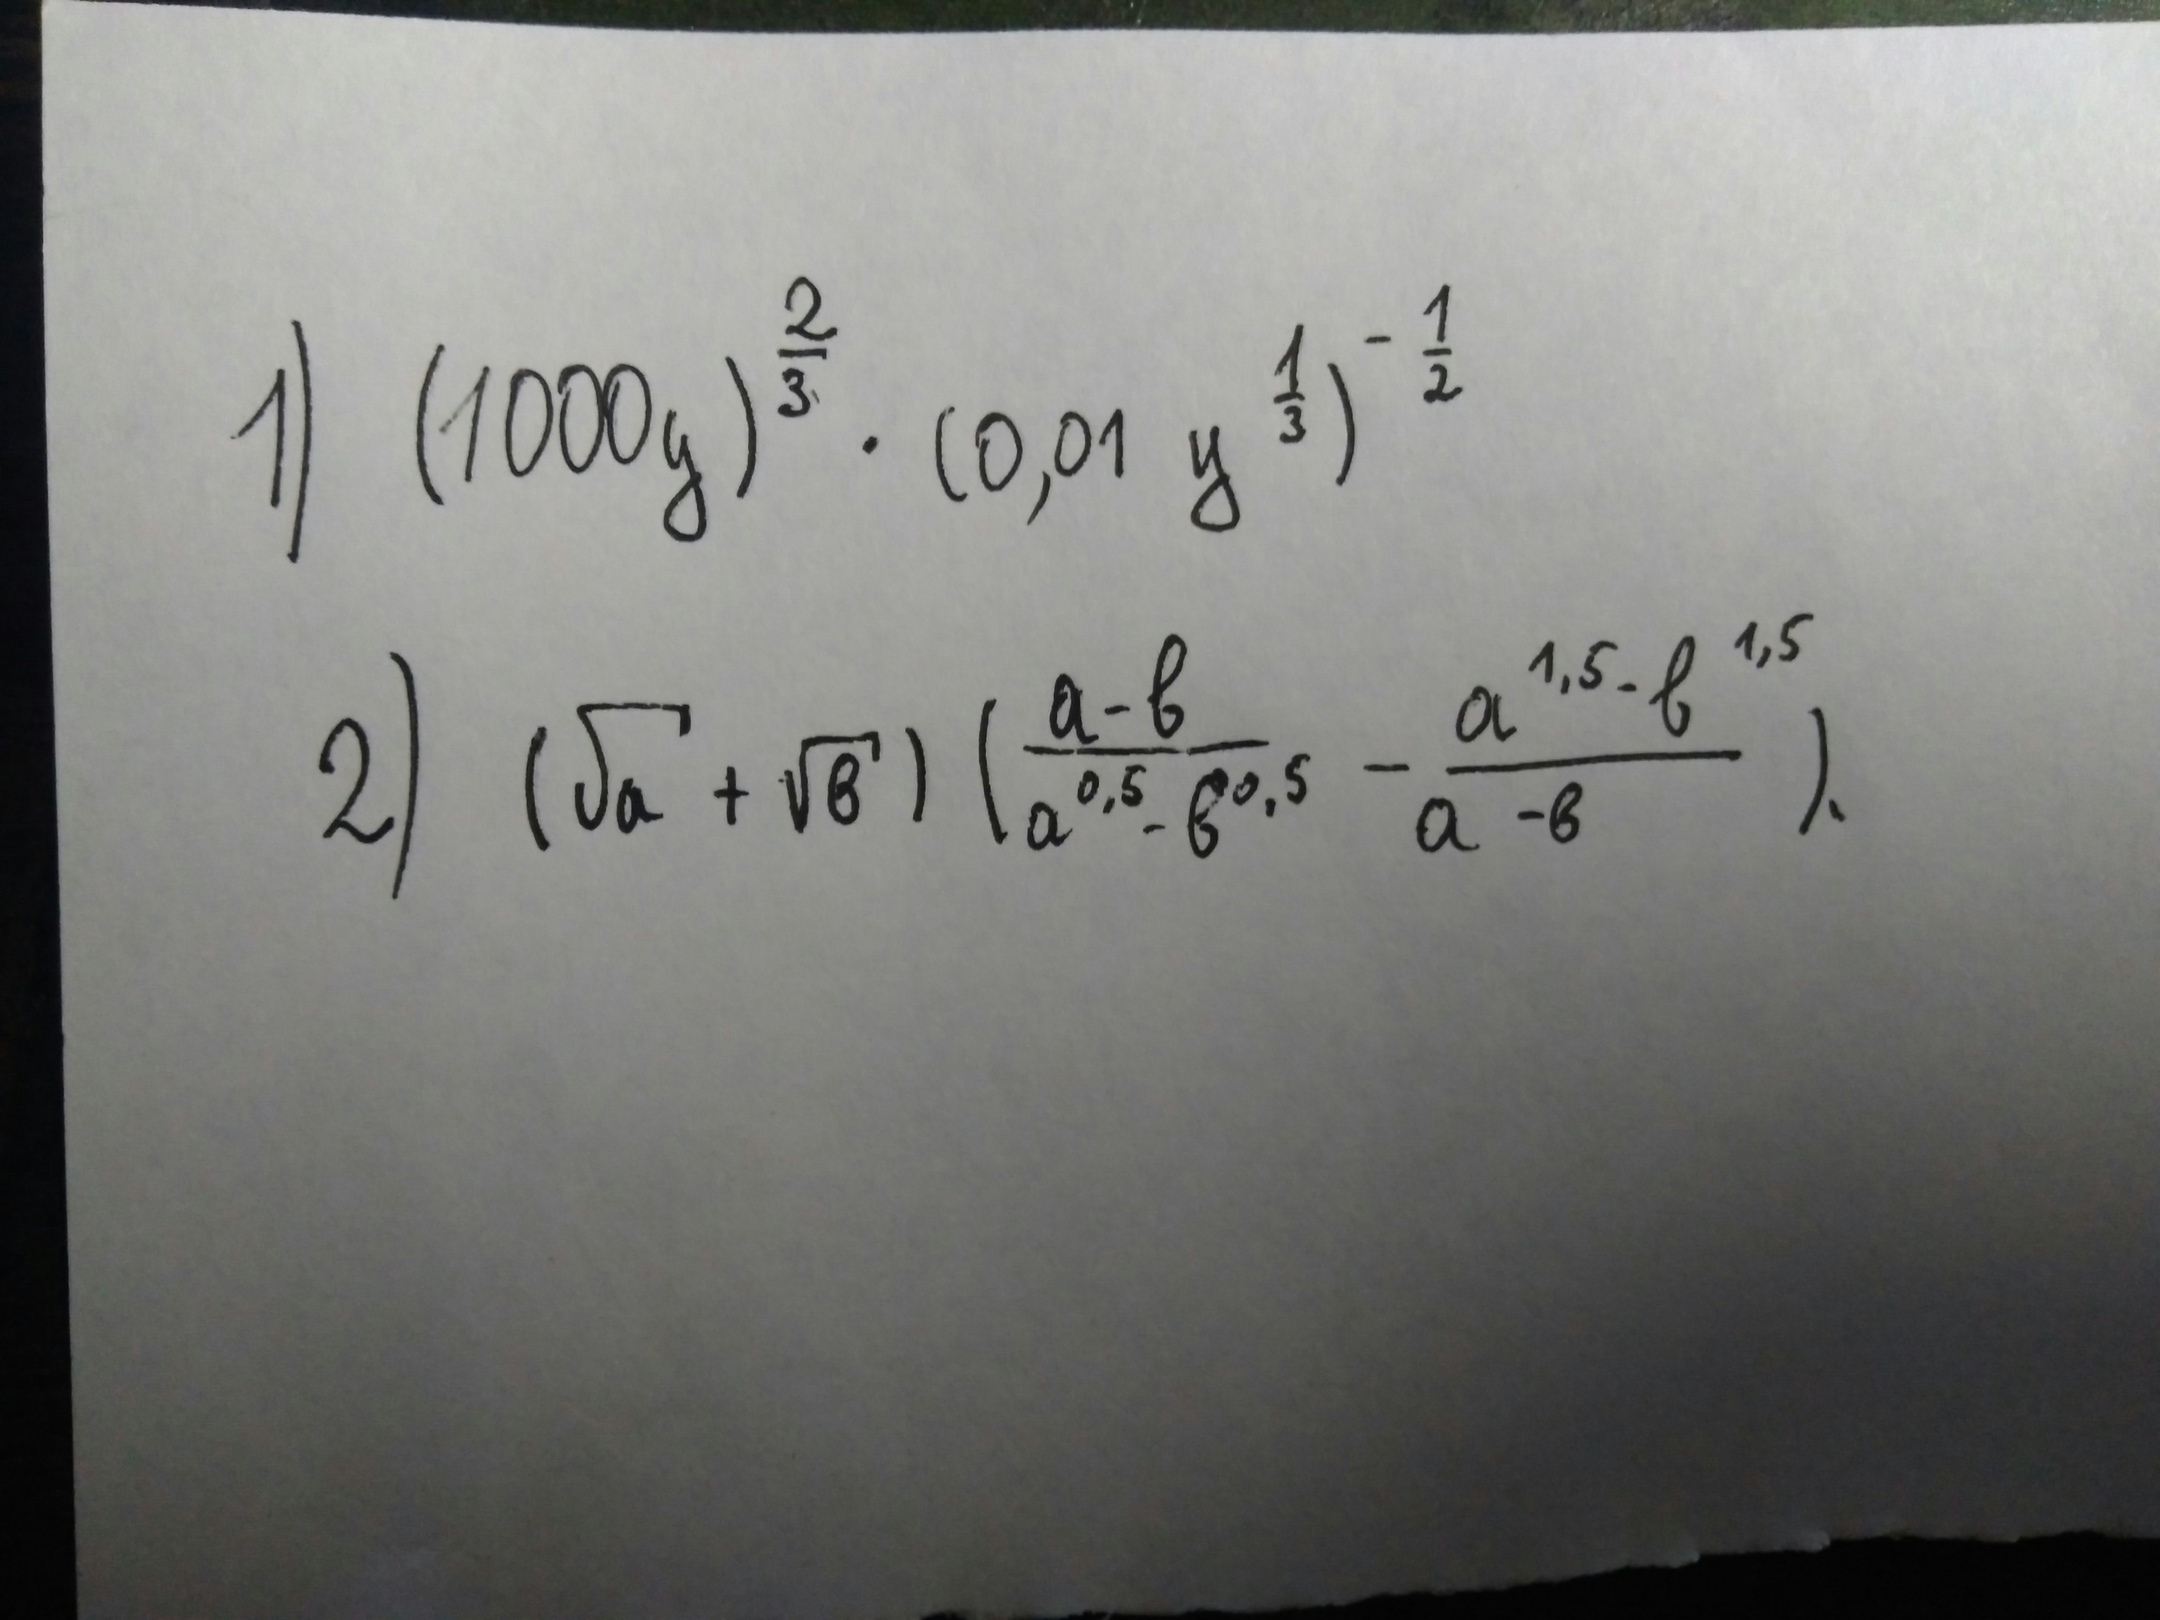 1) (1000y)^{2/3} · (0,01 y^{1/3})^{-1/2}
2) (√a + √в) ((a-в)/(a^{0,5} - в^{0,5}) - (a^{1,5} - в^{1,5})/(a - в)).